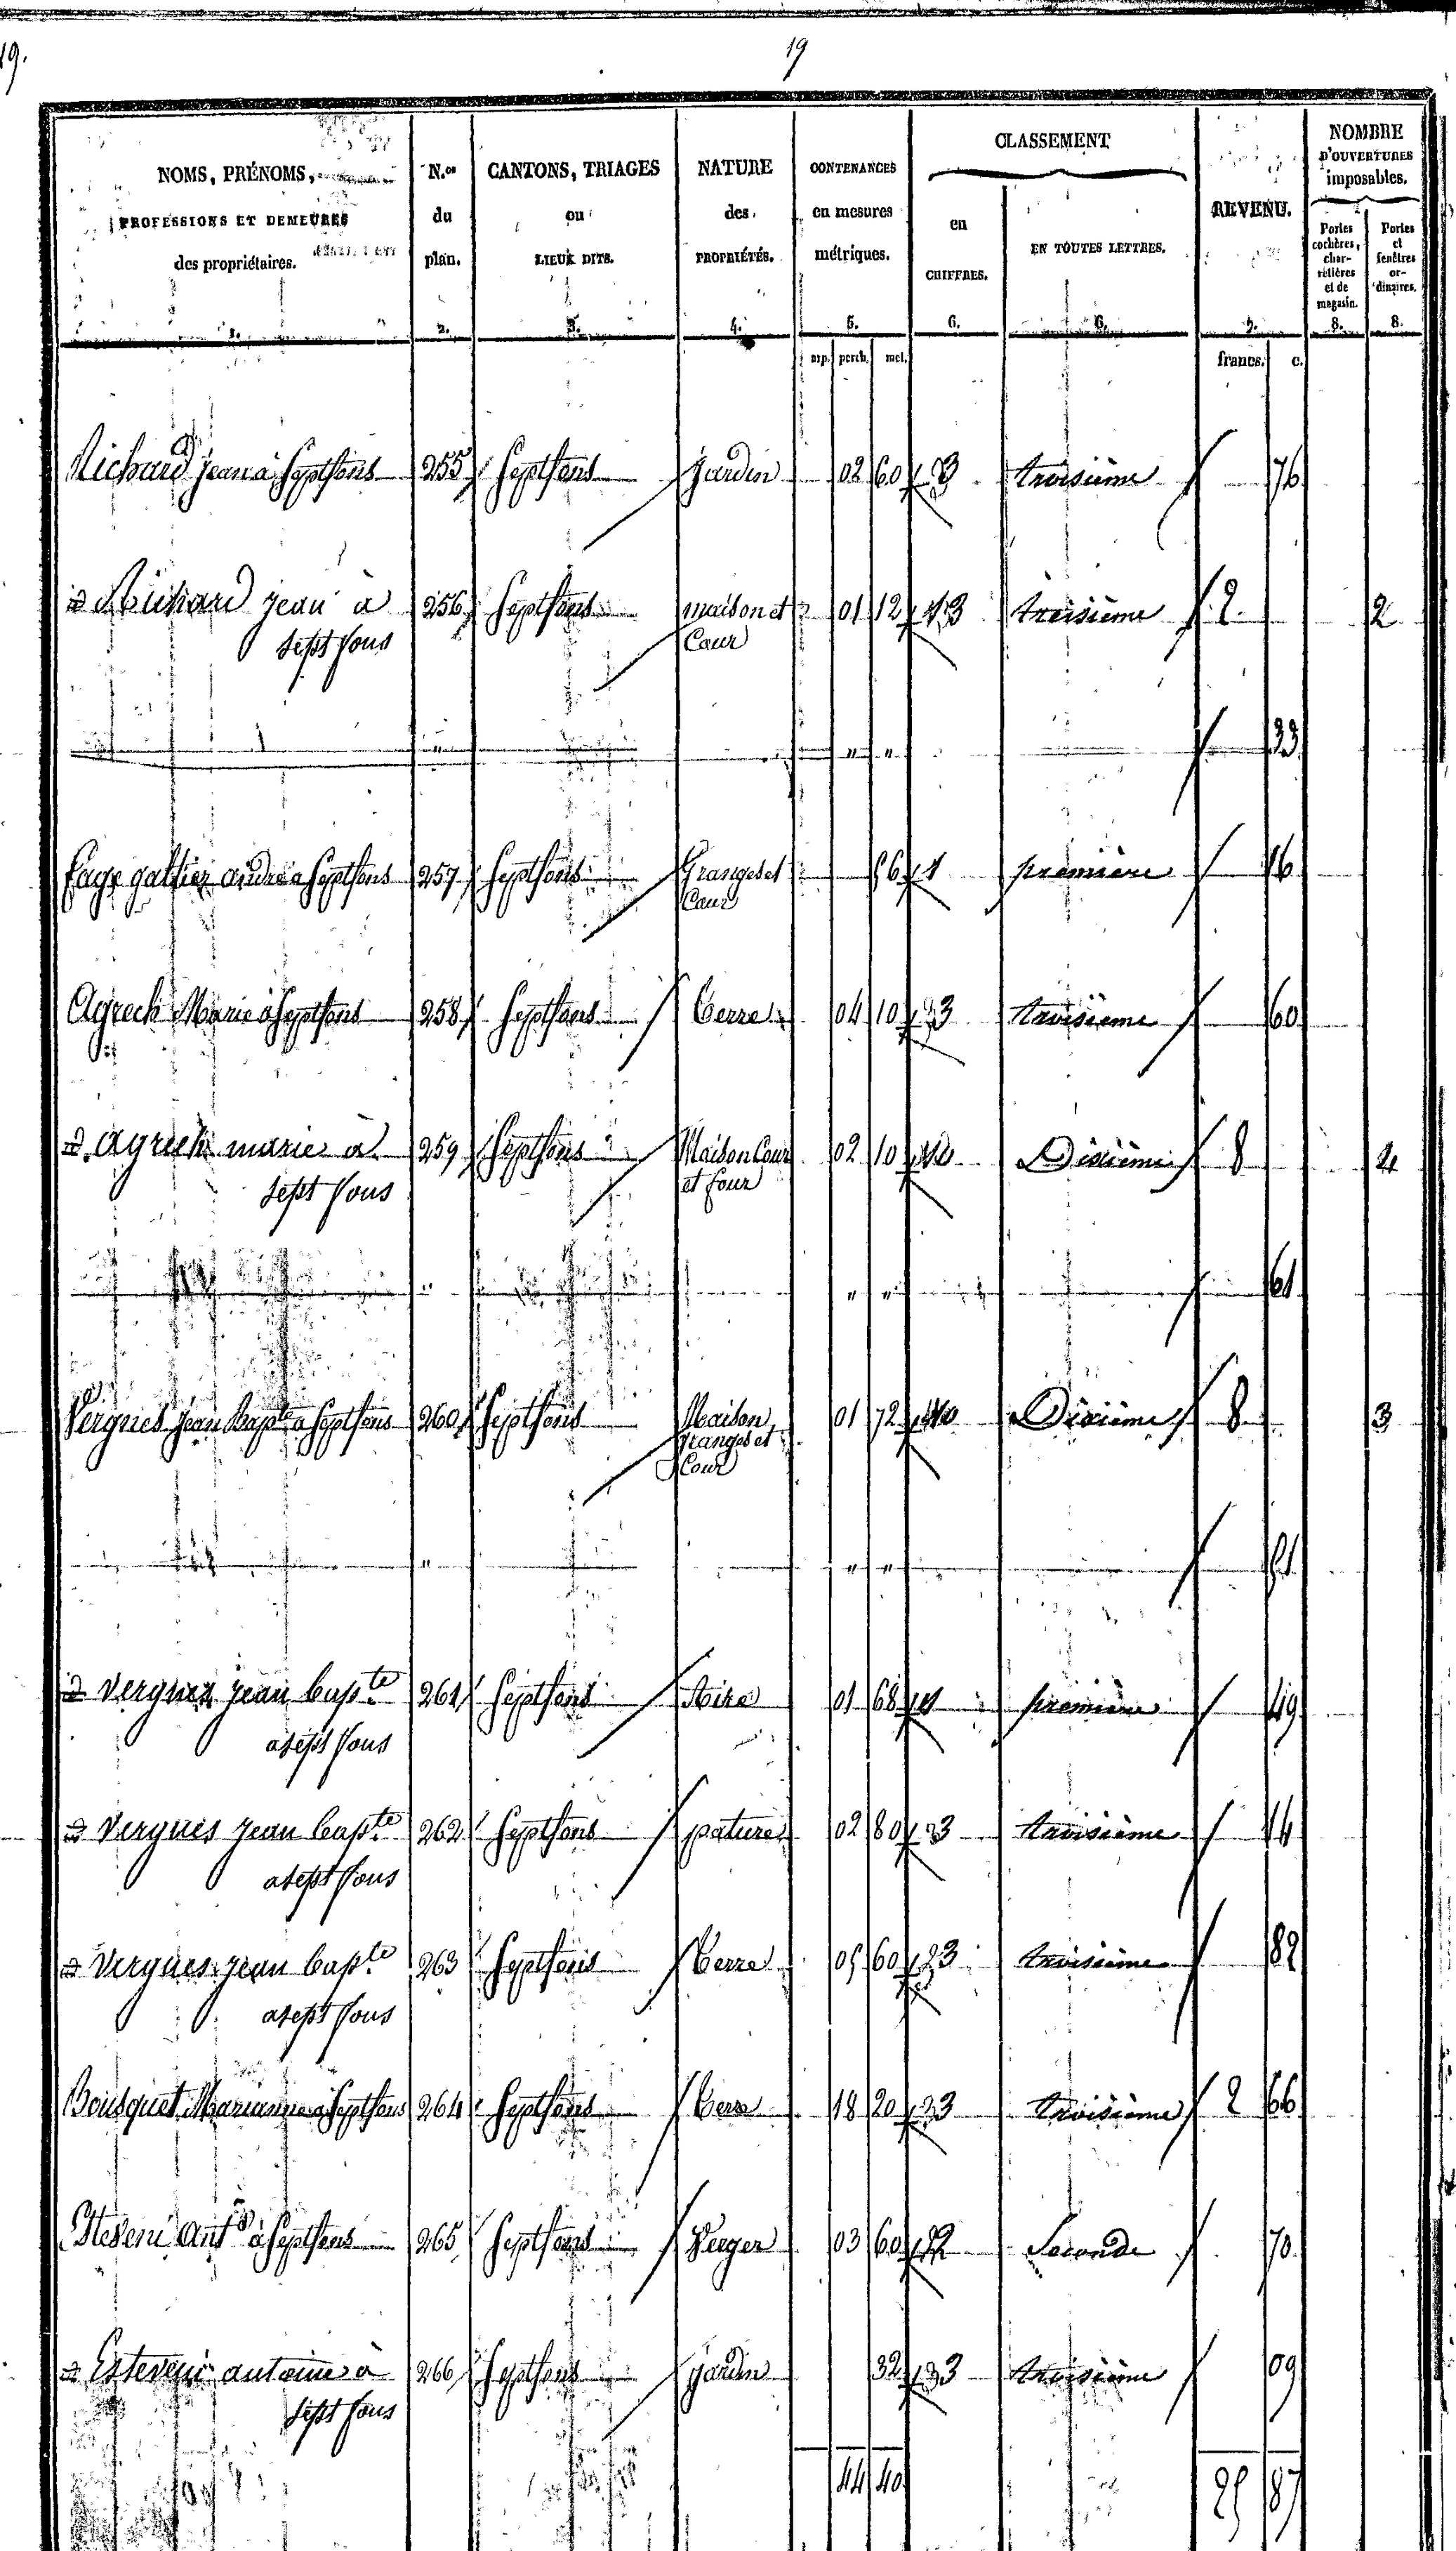 19.
19
NOMS, PRÉNOMS,
PROFESSIONS ET DEMEURES
des propriétaires.
1.
N.os
du
plan.
2.
CANTONS, TRIAGES
ou
LIEUX DITS.
3.
NATURE
des
PROPRIÉTÉS.
4.
CONTENANCES
en mesures
métriques.
5.
CLASSEMENT
en
CHIFFRES.
6.
EN TOUTES LETTRES.
6.
REVENU.
7.
NOMBRE
D'OUVERTURES
imposables.
Portes
cochères,
char-
retières
et de
magasin.
8.
Portes
et
fenêtres
or-
dinaires.
8.
arp. perch. met. francs. c.
Richard jean a Septfons 255 Septfons jardin 02 60 3 troisième 76
Richard jean à 256 Septfons maison et 01 12 3 troisième 2 2
sept fons Cour
" " " 33
Septfons 257 Septfons Granges et 1 première 16
Cour
Agrech Marie à Septfons 258 Septfons Terre 04 10 3 troisième 60
agrech marie a 259 Septfons Maison Cour 02 10 10 Dixième 8 4
sept fons et four
" " " 61
Vergnes jean Bapte a Septfons 260 Septfons Maison 01 72 10 Dixième 8 3
granges et
Cour
" " " 51
vergnes jean bapte 261 Septfons Aire 01 68 1 première 49
a sept fons
vergnes jean bapte 262 Septfons pature 02 80 3 troisième 14
a sept fons
vergnes jean bapte 263 Septfons Terre 05 60 3 troisième 82
a sept fons
Bousquet Marianne a Septfons 264 Septfons Terre 18 20 3 troisième 2 66
Ant à Septfons 265 Septfons Verger 03 60 2 Seconde 70
antoine a 266 Septfons jardin 32 3 troisième 09
sept fons
44 40 25 87